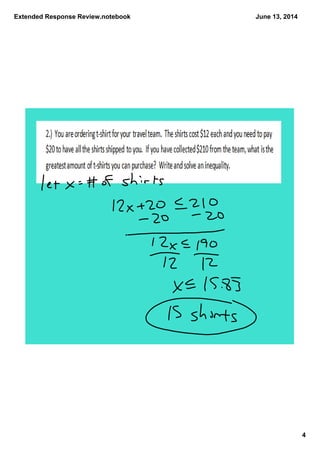 Extended Response Review.notebook June 13, 2014
2.) You are ordering t-shirt for your travel team. The shirts cost $12 each and you need to pay
$20 to have all the shirts shipped to you. If you have collected $210 from the team, what is the
greatest amount of t-shirts you can purchase? Write and solve an inequality.
let x = # of shirts
12x+20 ≤ 210
-20 -20
12x ≤ 190
12 12
x ≤ 15.83
15 shirts
4